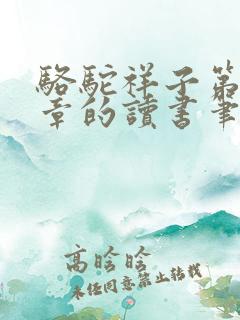 駱駝祥子第
章的讀書筆
高晗晗
未经同意禁止转载